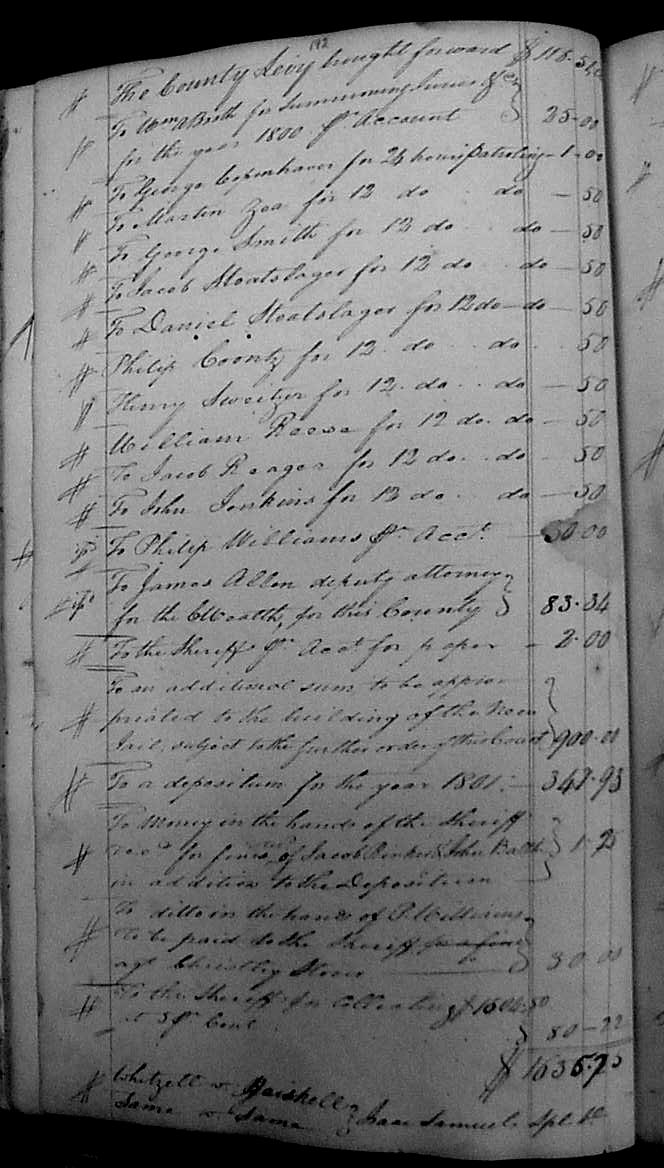 192
The County Levy brought forward $ 118.54
To Wm A Booth for Summoning Juries &c
for the year 1800 pr Account 25-00
To George Copenhaver for 24 hours Patroling - 1-00
To Martin Zea for 12 do do - 50
To George Smith for 12 do do - 50
To Jacob Stoatslager for 12 do do - 50
To Daniel Stoatslager for 12 do - do - 50
Philip Coontz for 12 do do 50
Henry Sweitzer for 12 do do - 50
William Reese for 12 do do - 50
To Jacob Reager for 12 do do - 50
To John Jenkins for 12 do do - 50
To Philip Williams pr Acct. - 50.00
To James Allen deputy attorney
for the CWealth, for this County 83.34
To the Sheriff pr Acct for paper - 2.00
To an additional sum to be appro
priated to the building of the new
Jail, subject to the further order of this Court 900.00
To a depositum for the year 1801 - 347.93
To Money in the hands of the Sheriff
recd for fines of Jacob Rinker & John 1.25
in addition to the Depositum
To ditto in the hands of P. Williams
to be paid to the Sheriff for a fine
agt Christley Stover 30.00
To the Sheriff for Collecting $ 1604.50
at 5 pr Cent 80-22
$ 1635.75
Whitzell v Heiskell
Same v Same Isaac Samuel Spl